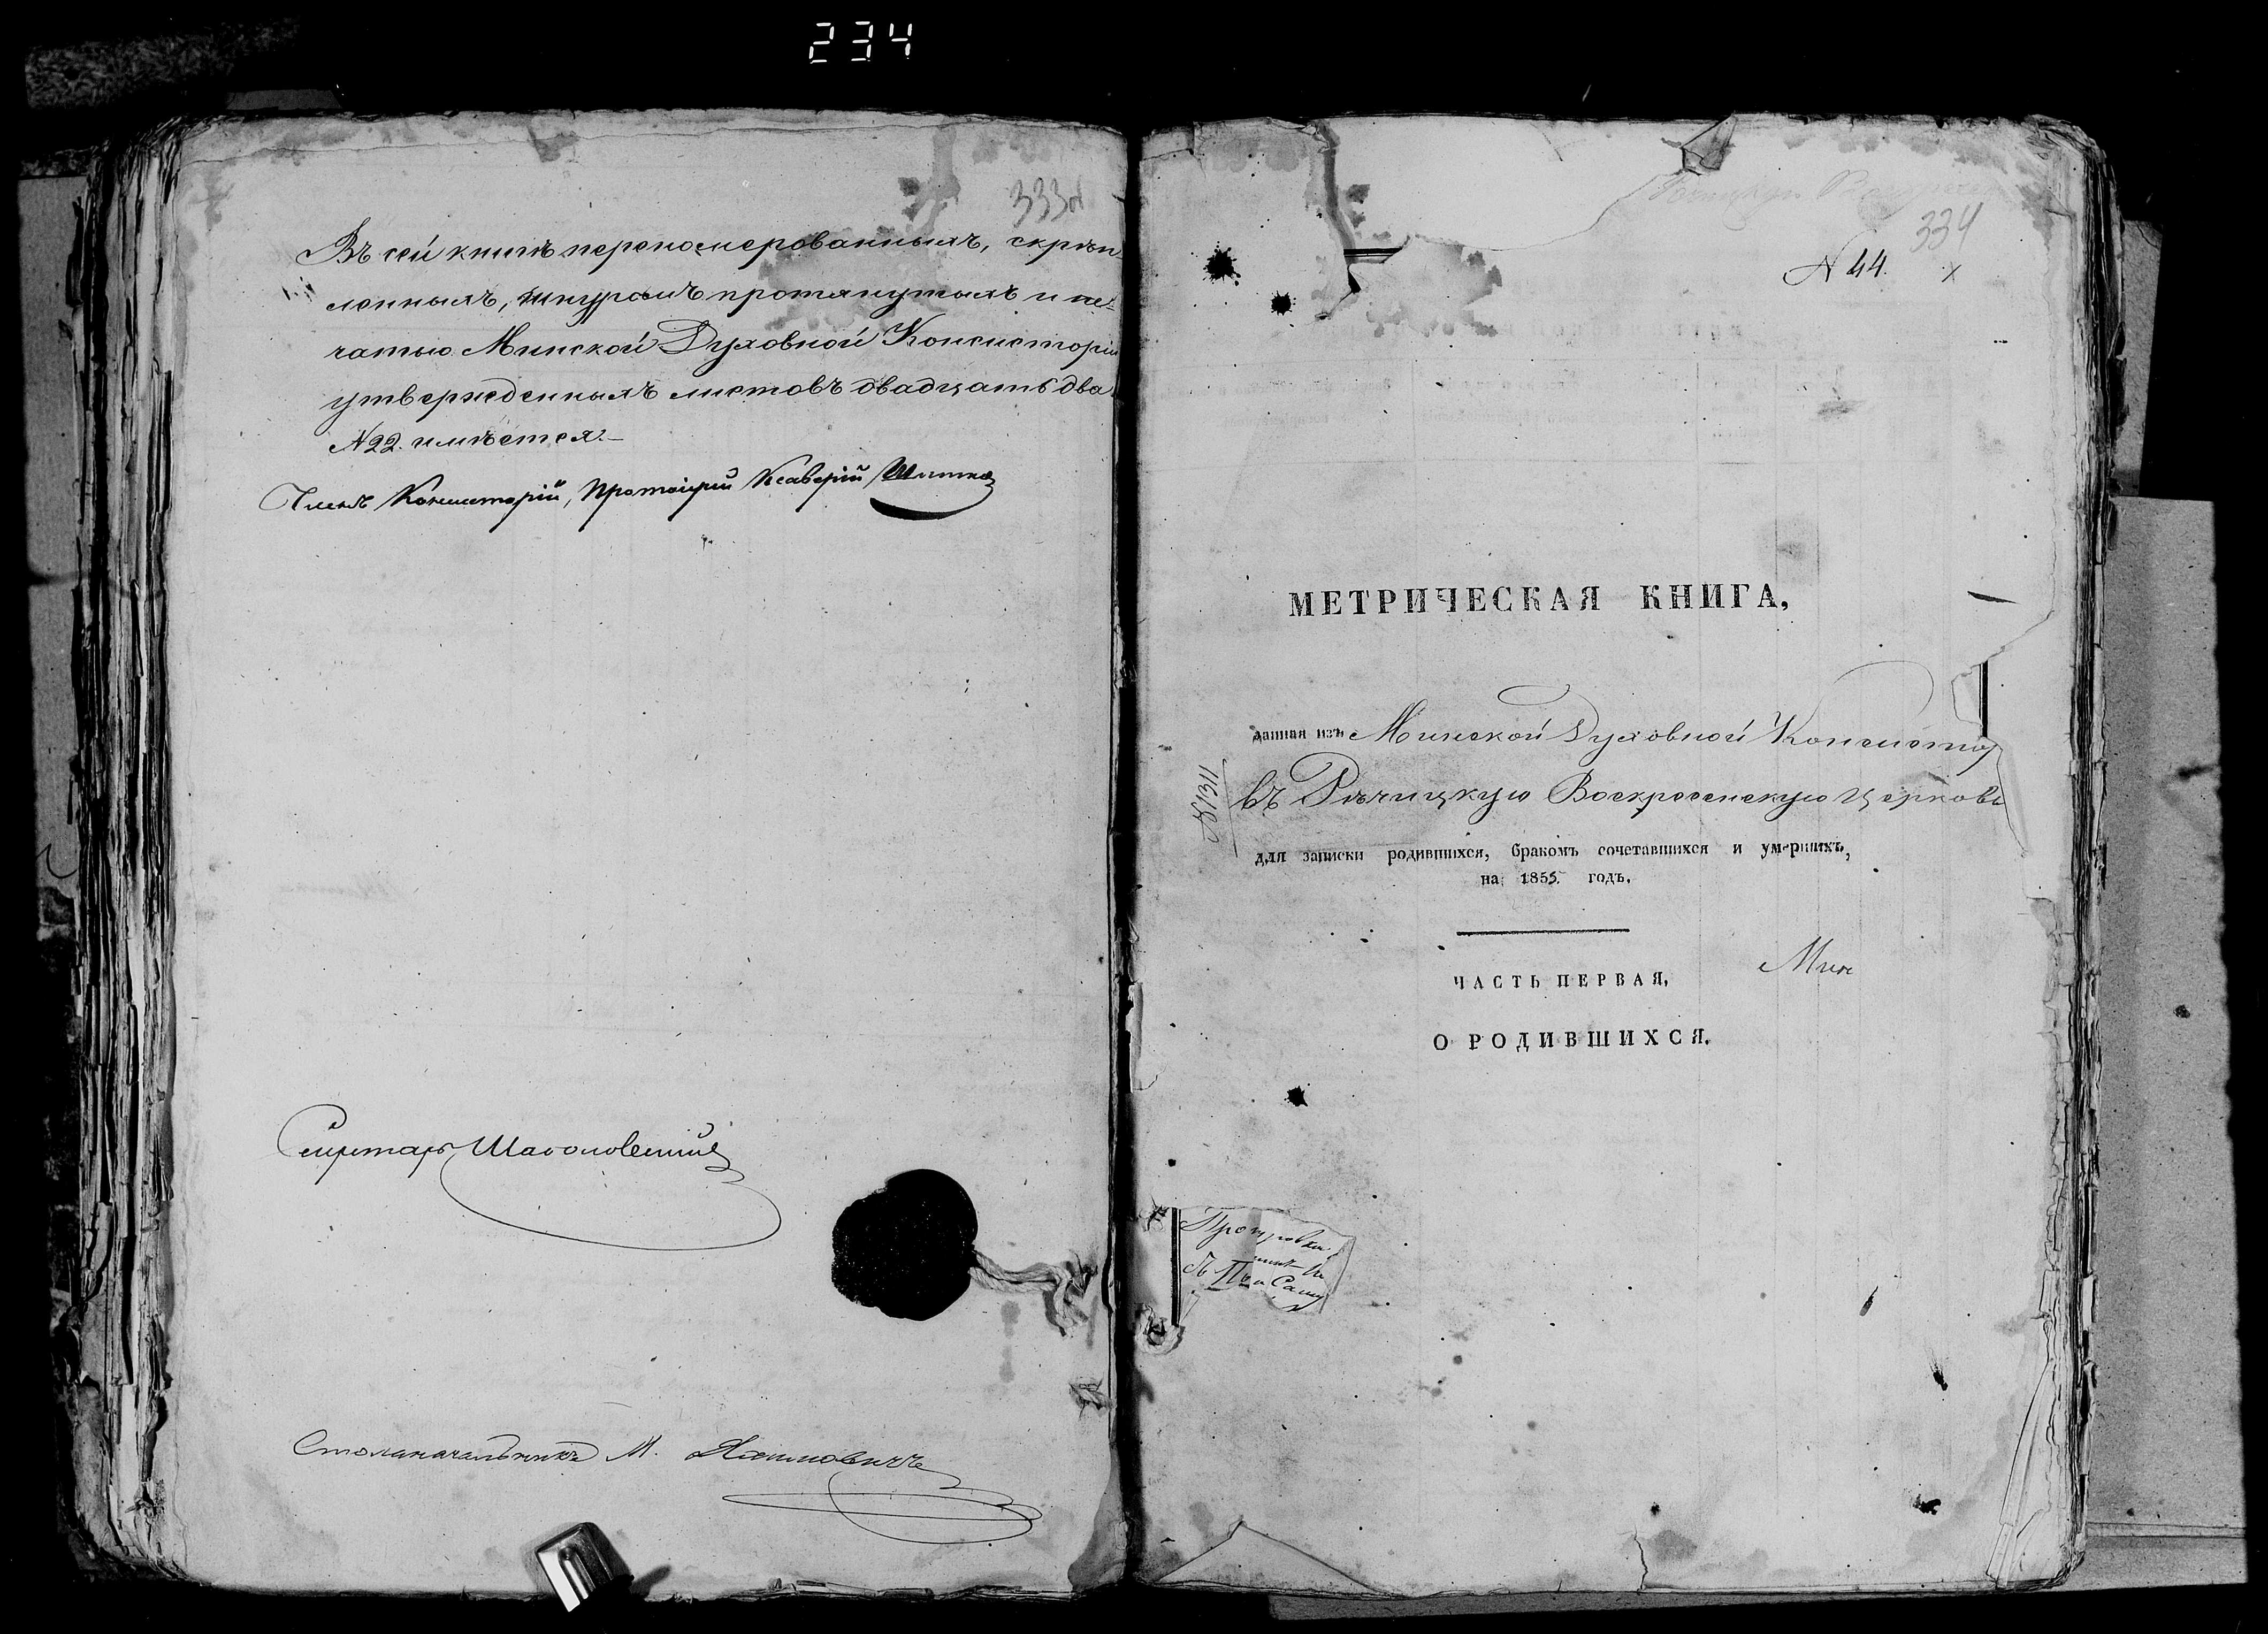 234
333
Въ сей книгѣ перенумерованныхъ, скрѣп
ленныхъ, шнуромъ протянутыхъ и пе-
чатью Минской Духовной Консисторіи
утвержденныхъ листовъ двадцать два
№ 22. имѣется.—
Членъ Консисторіи, Протоіерей Ксаверій
Секретарь
Столоначальникъ М.
334
N 44. х
МЕТРИЧЕСКАЯ КНИГА,
данная изъ Минской Духовной Консистор
въ Рѣчицкую Воскресенскую Церковь
№ 1311
для записки родившихся, бракомъ сочетавшихся и умершихъ,
на 1855. годъ.
Мин
ЧАСТЬ ПЕРВАЯ,
О РОДИВШИХСЯ.